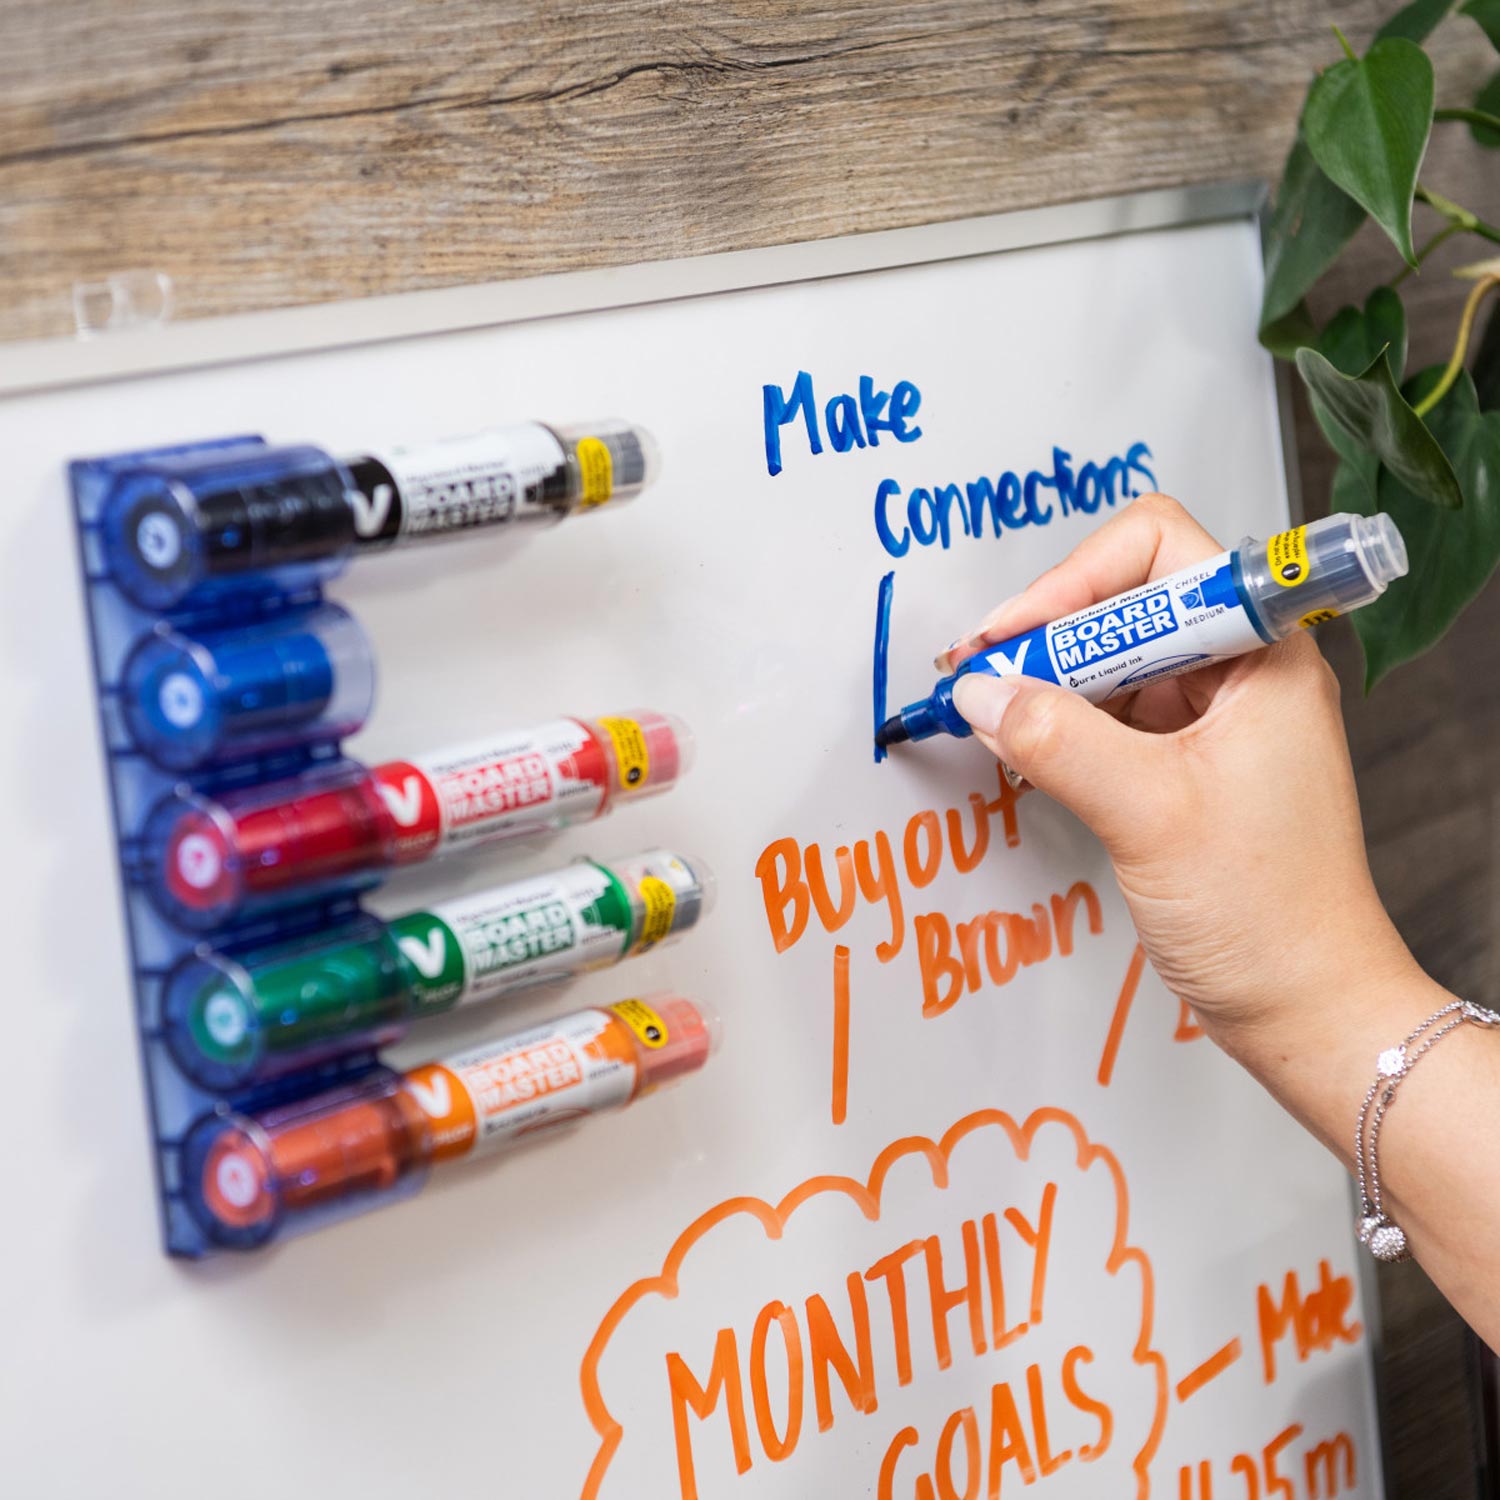 Make
Connections
Wytebord Marker
BOARD
MASTER
CHISEL
MEDIUM
Pure Liquid Ink
V
BOARD
MASTER
V
BOARD
MASTER
V
BOARD
MASTER
V
BOARD
MASTER
V
Buyout
Brown
MONTHLY
GOALS
- Make